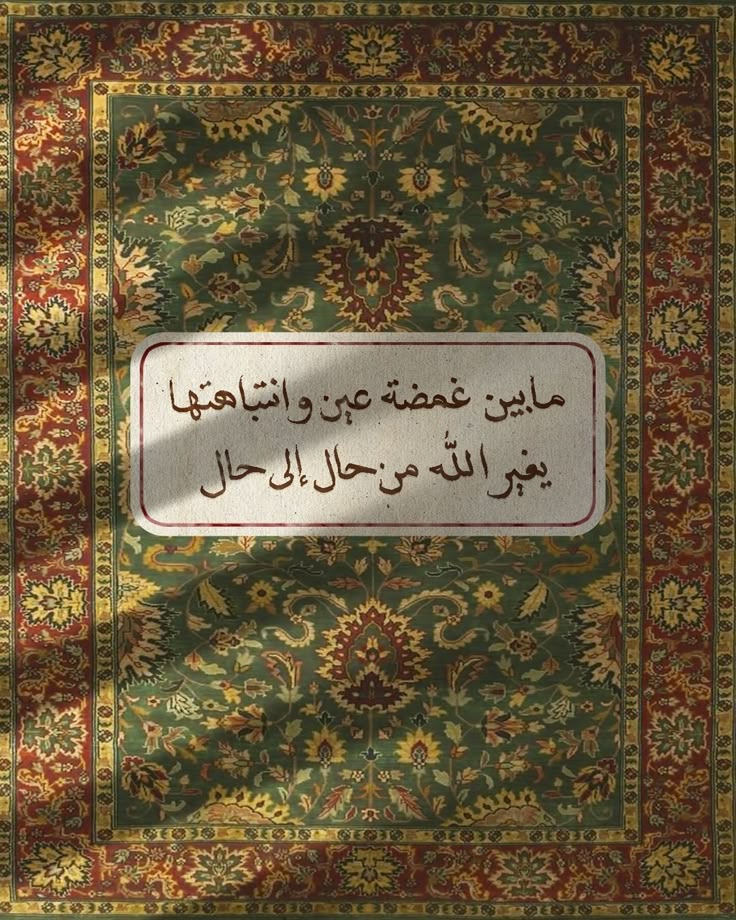 مابين غمضة عين وانتباهتها
يغير الله من حال إلى حال